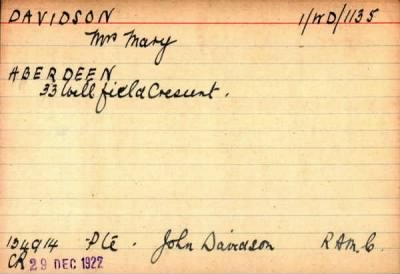 DAVIDSON 1/WD/1135
Mrs Mary
ABERDEEN
33 Wellfield Crescent.
154914 Pte. John Davidson R.A.M.C.
CR 29 DEC 1922